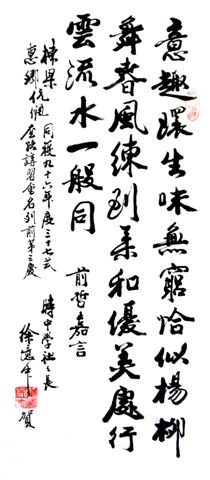 意趣環生味無窮恰似楊柳
舞春風練到柔和優美處行
雲流水一般同
前哲嘉言
同獲九十六年度三十七式
惠卿伉儷 講習會名列前第三慶
時中學社社長
徐憶中 賀